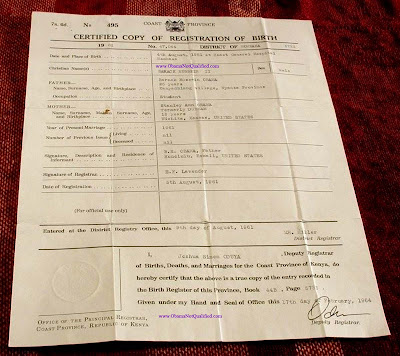 7s. 6d. No 495 COAST PROVINCE
CERTIFIED COPY OF REGISTRATION OF BIRTH
19 No. 47,044 DISTRICT OF
www.ObamaNotQualified.com
Date and Place of Birth 4th August, 1961 Coast General Hospital
Mombasa
Christian Name(s) BARACK HUSSEIN II Sex Male
FATHER— Barack Hussein OBAMA
Name, Surname, Age, and Birthplace 26 years
Province
Occupation Student
MOTHER— Stanley Ann OBAMA
Name, Surname, Maiden Surname, Age, formerly DUNHAM
and Birthplace 18 years
Wichita, Kansas, UNITED STATES
Year of Present Marriage 1961
Number of Previous Issue Living nil
Deceased nil
Signature, Description and Residence of Informant B.H. OBAMA, Father
Honolulu, Hawaii, UNITED STATES
Signature of Registrar Lavender
Date of Registration 5th August, 1961
(For official use only)
Entered at the District Registry Office, this day of August, 1961
Miller
District Registrar
I, Joshua Simon ODUYA , Deputy Registrar
of Births, Deaths, and Marriages for the Coast Province of Kenya, do
hereby certify that the above is a true copy of the entry recorded in
the Birth Register of this Province, Book 44B , Page
Given under my Hand and Seal of Office this 17th day of February, 1964
www.ObamaNotQualified.com
Deputy Registrar
OFFICE OF THE PRINCIPAL REGISTRAR,
COAST PROVINCE, REPUBLIC OF KENYA